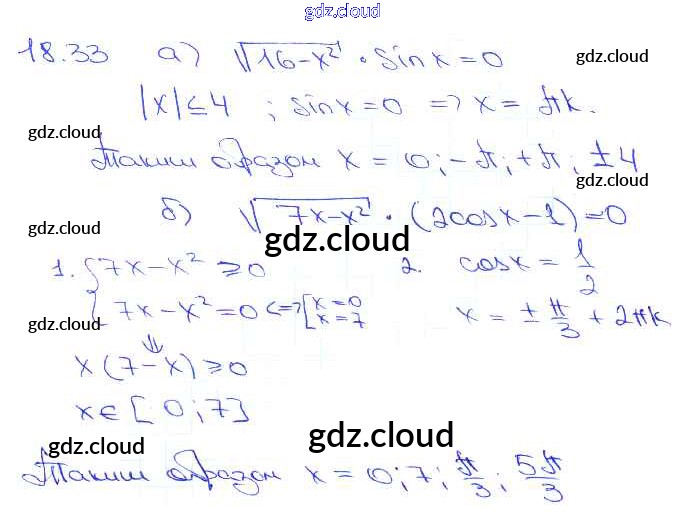 gdz.cloud
18.33 а) √(16-x²) · sin x = 0
gdz.cloud
|x| ≤ 4 ; sin x = 0 => x = πk.
gdz.cloud
gdz.cloud
Таким образом x = 0; -π; +π; ±4
gdz.cloud
б) √(7x-x²) · (2cosx-1)=0
gdz.cloud
gdz.cloud
1. { 7x-x² ≥ 0
7x-x² = 0 <=> [ x=0 x=7
2. cosx = 1/2
x = ± π/3 + 2πk
gdz.cloud
gdz.cloud
⇓
x(7-x) ≥ 0
x∈[0;7]
gdz.cloud
gdz.cloud
gdz.cloud
Таким образом x = 0; 7; π/3; 5π/3